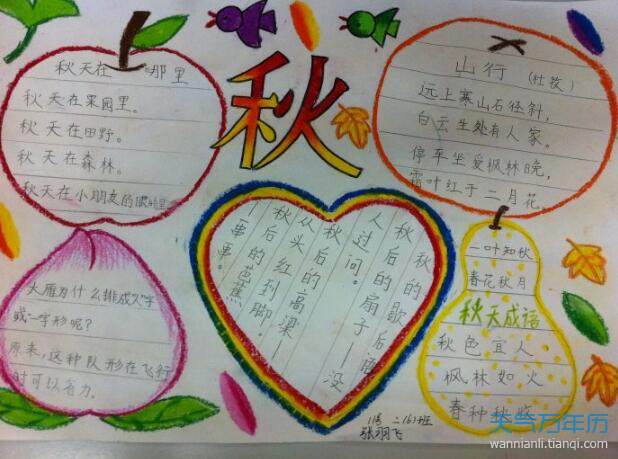 秋
秋天在哪里
秋天在果园里。
秋天在田野。
秋天在森林。
秋天在小朋友的眼睛里
山行 (杜牧)
远上寒山石径斜,
白云生处有人家。
停车坐爱枫林晚,
霜叶红于二月花。
大雁为什么排成"人"字
或一字形呢?
原来,这种队形在飞行
时可以省力。
秋的歇后语
秋后的扇子—没
人过问。
秋后的高粱—
从头红到脚。
秋后的芭蕉—
一串串。
一叶知秋
春花秋月
秋天成语
秋色宜人
枫林如火
春种秋收
二(6)班
天气万年历
wannianli.tianqi.com